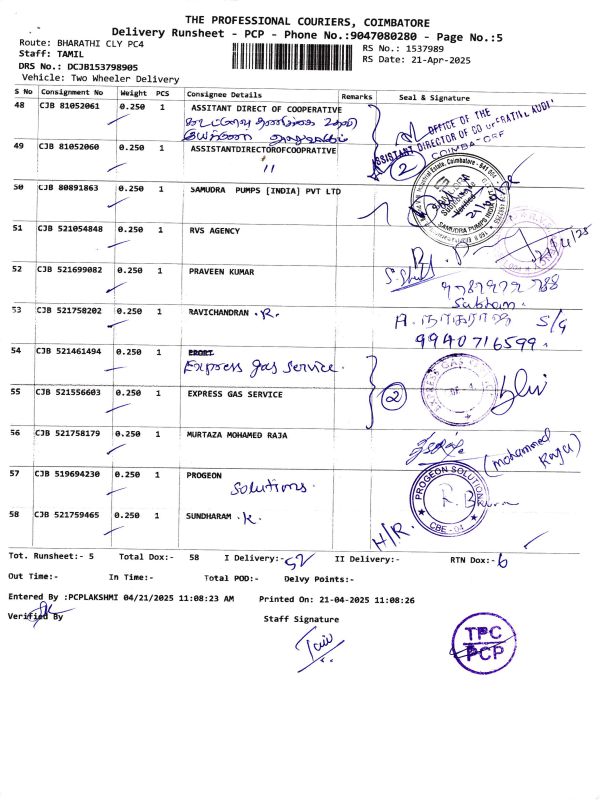 THE PROFESSIONAL COURIERS, COIMBATORE
Delivery Runsheet - PCP - Phone No.:9047080280 - Page No.:5
Route: BHARATHI CLY PC4
RS No.: 1537989
Staff: TAMIL
RS Date: 21-Apr-2025
DRS No.: DCJB153798905
Vehicle: Two Wheeler Delivery
S No Consignment No Weight PCS Consignee Details Remarks Seal & Signature
48 CJB 81052061 0.250 1 ASSITANT DIRECT OF COOPERATIVE
OFFICE OF THE
ASSISTANT DIRECTOR OF CO OPERATIVE AUDIT
COIMBATORE
49 CJB 81052060 0.250 1 ASSISTANTDIRECTOROFCOOPRATIVE
11
2
50 CJB 80891863 0.250 1 SAMUDRA PUMPS [INDIA] PVT LTD
SAMUDRA PUMPS INDIA
51 CJB 521054848 0.250 1 RVS AGENCY
52 CJB 521699082 0.250 1 PRAVEEN KUMAR
53 CJB 521758202 0.250 1 RAVICHANDRAN . R.
A. நாகராஜ் S/G
9940716599.
54 CJB 521461494 0.250 1
Express gas service.
EXPRESS GAS
55 CJB 521556603 0.250 1 EXPRESS GAS SERVICE
2
56 CJB 521758179 0.250 1 MURTAZA MOHAMED RAJA
(mohammed Raja)
57 CJB 519694230 0.250 1 PROGEON
Solutions.
PROGEON SOLUTIONS
CBE - 04
58 CJB 521759465 0.250 1 SUNDHARAM . K.
H/R.
Tot. Runsheet:- 5 Total Dox:- 58 I Delivery:- 52 II Delivery:- RTN Dox:- 6
Out Time:- In Time:- Total POD:- Delvy Points:-
Entered By :PCPLAKSHMI 04/21/2025 11:08:23 AM Printed On: 21-04-2025 11:08:26
Verified By Staff Signature
TPC
PCP